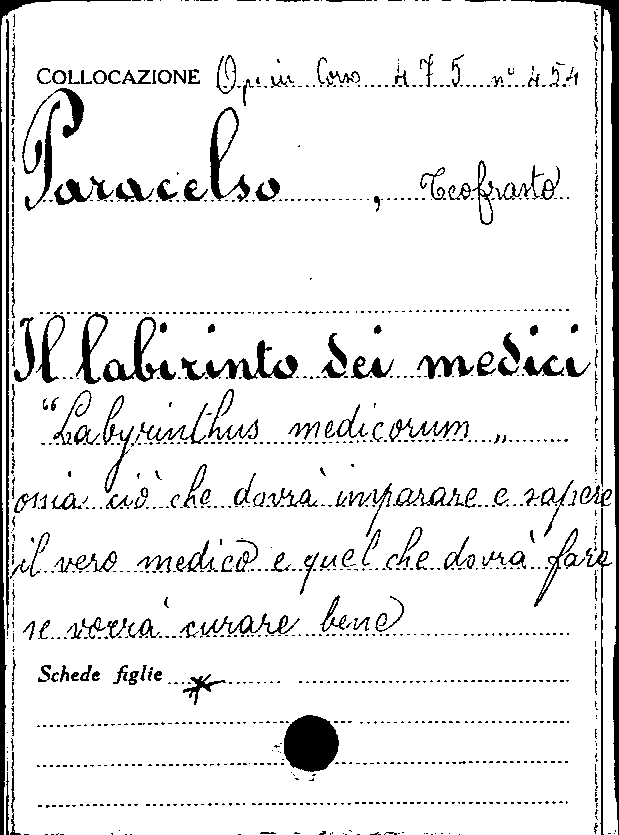 COLLOCAZIONE Op. in Corso 475 n° 454
Paracelso, Teofrasto
Il labirinto dei medici
"Labyrinthus medicorum„
ossia ciò che dovrà imparare e sapere
il vero medico e quel che dovrà fare
se vorrà curare bene
Schede figlie